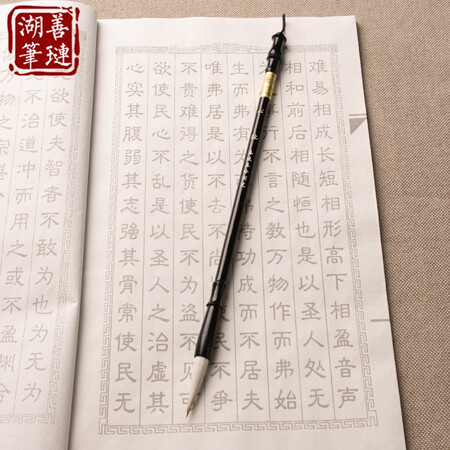 善璉
湖筆
难易相成长短相形高下相盈音声
相和前后相随恒也是以圣人处无
不言之教万物作而弗始
生而弗有为而居夫
唯弗居是以不去不尚民不争
不贵难得之货使民不为盗不见可
欲使民心不乱是以圣人之治虚其
心实其腹弱其志强其骨常使民无
欲使夫智者不敢为也为无为
不治道冲而用之或不盈渊兮
万物之宗